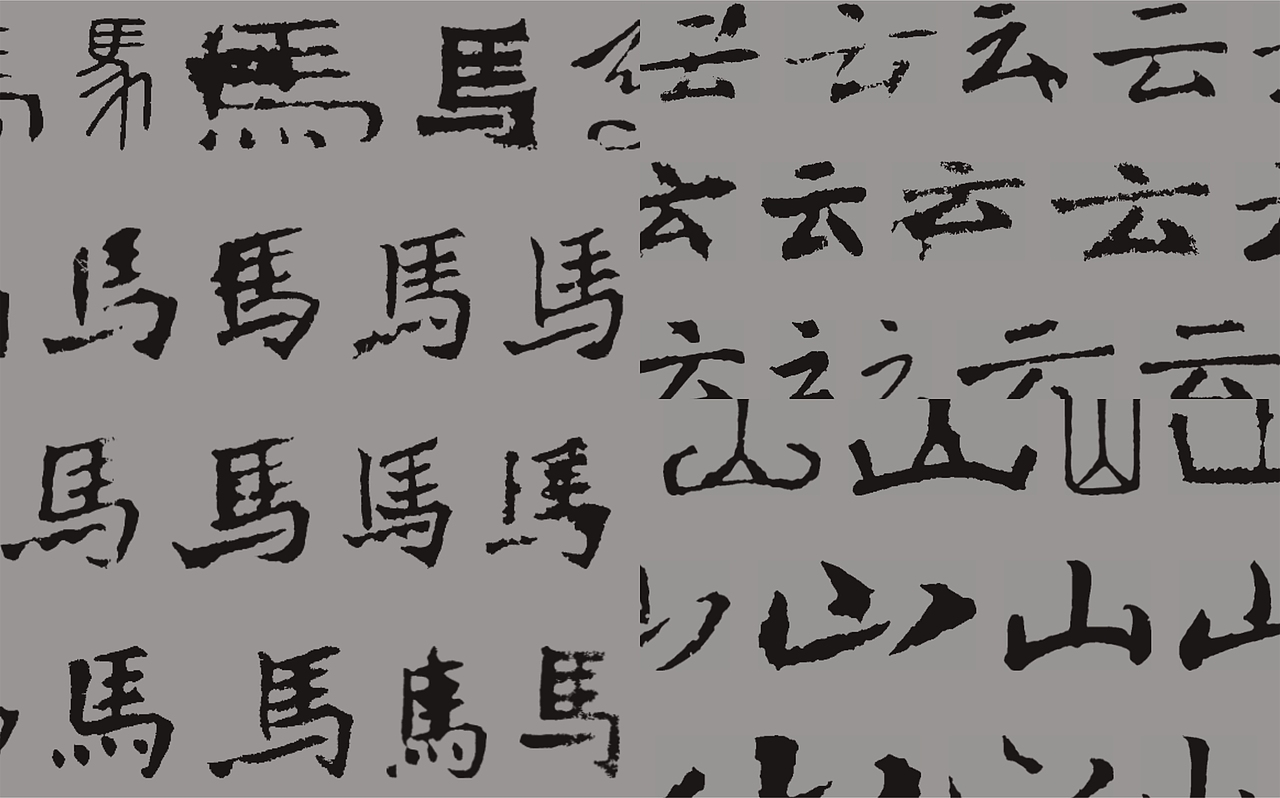 馬馬馬
馬馬馬馬
馬馬馬馬
馬馬馬馬
云云云云
云云云云
云云云云云
山山山山
山山山